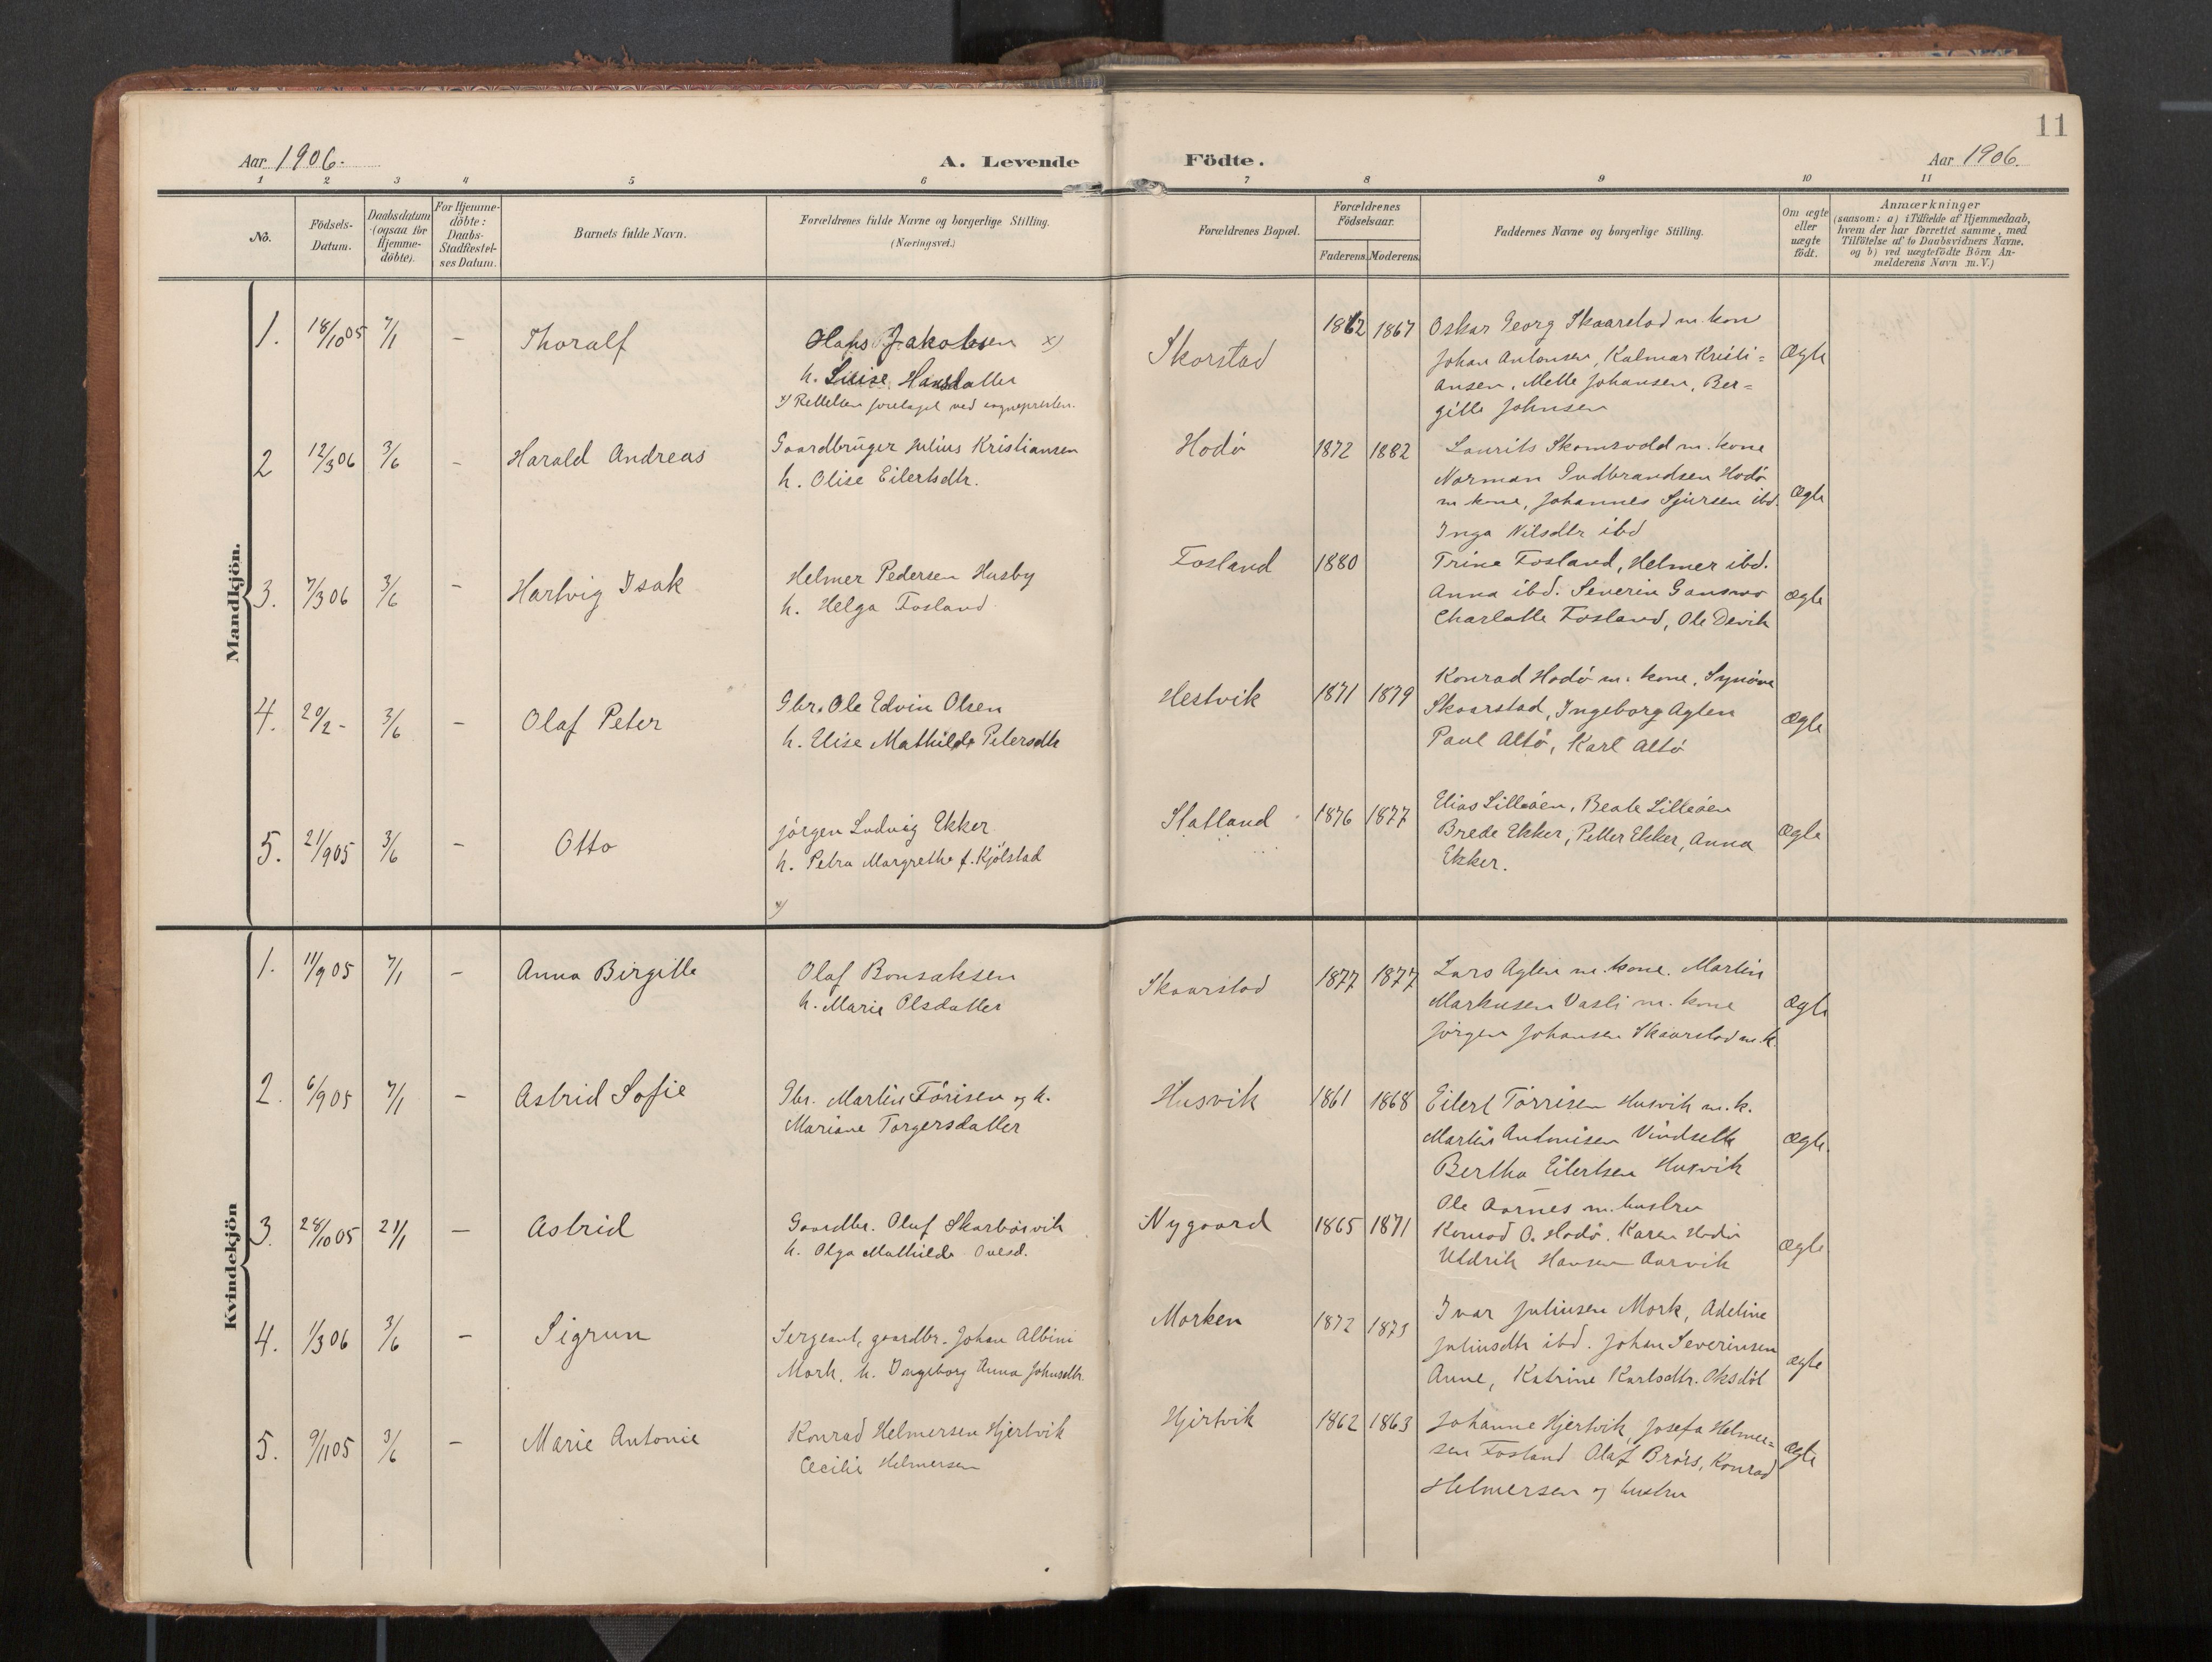 11
Aar 1906.
A. Levende Födte.
Aar 1906.
1 2 3 4 5 6 7 8 9 10 11
No.
Födsels-Datum.
Daabsdatum (ogsaa for Hjemme-döbte).
For Hjemme-döbte: Daabs-Stadfæstel-ses Datum.
Barnets fulde Navn.
Forældrenes fulde Navne og borgerlige Stilling. (Næringsvei.)
Forældrenes Bopæl.
Forældrenes Födselsaar.
Faderens. Moderens.
Faddernes Navne og borgerlige Stilling.
Om ægte eller uægte födt.
Anmærkninger
(saasom: a) i Tilfælde af Hjemmedaab,
hvem der har forrettet samme, med
Tilföielse af to Daabsvidners Navne,
og b) ved uægtefödte Börn An-
melderens Navn m.V.)
Mandkjön.
1. 18/10 05 7/1 – Thoralf
Hans Jakobsen x)
h. Luise Hansdatter
x) Rettelsen foretaget ved sognepresten.
Skorstad 1862 1867
Oskar Georg Skaarstad m. kone
Johan Antonsen, Kalmar Kristi=
ansen, Mette Johansen, Ber=
gitte Johnsen
Ægte
2 12/3 06 3/6 – Harald Andreas
Gaardbruger Julius Kristiansen
h. Olise Eilertsdtr.
Hodø 1872 1882
Laurits Skomsvold m. kone
Norman Gudbrandsen Hodø
m kone, Johannes Sjursen ibd.
Inga Nilsdtr ibd
Ægte
3. 7/3 06 3/6 – Hartvig Isak
Helmer Pedersen Husby
h. Helga Fosland
Fosland 1880
Trine Fosland, Helmer ibd.
Anna ibd. Severin Gansmo
Charlotte Fosland, Ole Devik
Ægte
4. 20/2 - 3/6 – Olaf Peter
Gbr. Ole Edvin Olsen
h. Elise Mathilde Petersdtr
Hestvik 1871 1879
Konrad Hodø m. kone, Synøve
Skaarstad, Ingeborg Aglen
Paul Altø, Karl Altø
Ægte
5. 21/9 05 3/6 – Otto
Jørgen Ludvig Ekker
h. Petra Margrethe f. Kjølstad
x)
Statland 1876 1877
Elias Lilleøen, Beate Lilleøen
Brede Ekker, Petter Ekker, Anna
Ekker.
Ægte
Kvindekjön
1. 11/9 05 7/1 – Anna Birgitte
Olaf Bonsaksen
h. Marie Olsdatter
Skaarstad 1877 1877
Lars Aglen m. kone. Martin
Markusen Vasli m. kone
Jørgen Johansen Skaarstad m. k.
Ægte
2. 6/9 05 7/1 – Astrid Sofie
Gbr. Martin Törisen og h.
Mariane Torgersdatter
Husvik 1861 1868
Eilert Tørrisen Husvik m. k.
Martin Antonisen Vindsetk
Bertha Eilertsen Husvik
Ægte.
3. 28/10 05 21/1 – Astrid
Gaardbr. Oluf Skarbøsvik
h. Olga Mathilde Ovesd.
Nygaard 1865 1871
Ole Aarnes m. hustru
Konrad O. Hodø. Karen Hodø
Uldrik Hansen Aarvik
Ægte
4. 1/3 06 3/6 – Sigrun
Sergeant, gaardbr. Johan Albini
Mork. h. Ingeborg Anna Johnsdtr.
Morken 1872 1873
Ivar Juliusen Mork, Adeline
Juliusdtr ibd. Johan Severinsen
Anne, Katrine Karlsdtr. Oksdøl
Ægte
5. 9/11 05 3/6 – Marie Antonie
Konrad Helmersen Hjertvik
Cecilie Helmersen
Hjertvik 1862 1863
Johanne Hjertvik, Josefa Helmer=
sen Fosland Olaf Brørs, Konrad
Helmersen og hustru
Ægte